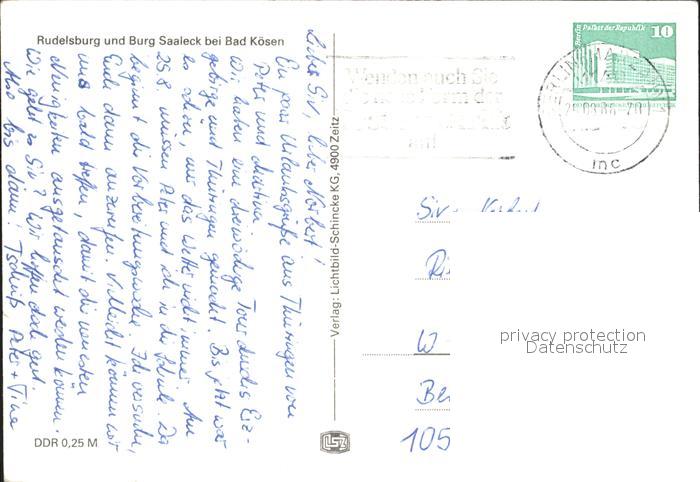 Rudelsburg und Burg Saaleck bei Bad Kösen
Liebe Siv, lieber Norbert!
Ein paar Urlaubsgrüße aus Thüringen von
Peter und
Wir haben eine dreiwöchige Tour durchs Erz-
gebirge und Thüringen gemacht. Bis jetzt war
es schön, nur das Wetter nicht immer. Am
25.8. müssen Peter und ich in die Schule. Da
beginnt die Vorbereitungswoche. Ich versuche,
Euch dann anzurufen. Vielleicht können wir
uns bald treffen, damit die neuesten
Neuigkeiten ausgetauscht werden können.
Wie geht es Siv? Wir hoffen doch gut.
Also bis dann! Tschüß Peter + Tina
DDR 0,25 M
Verlag: Lichtbild-Schincke KG, 4900 Zeitz
LSZ
Berlin Palast der Republik
10
DDR
Wenden auch Sie
der
Siv
Ri
W
Be
105
privacy protection
Datenschutz